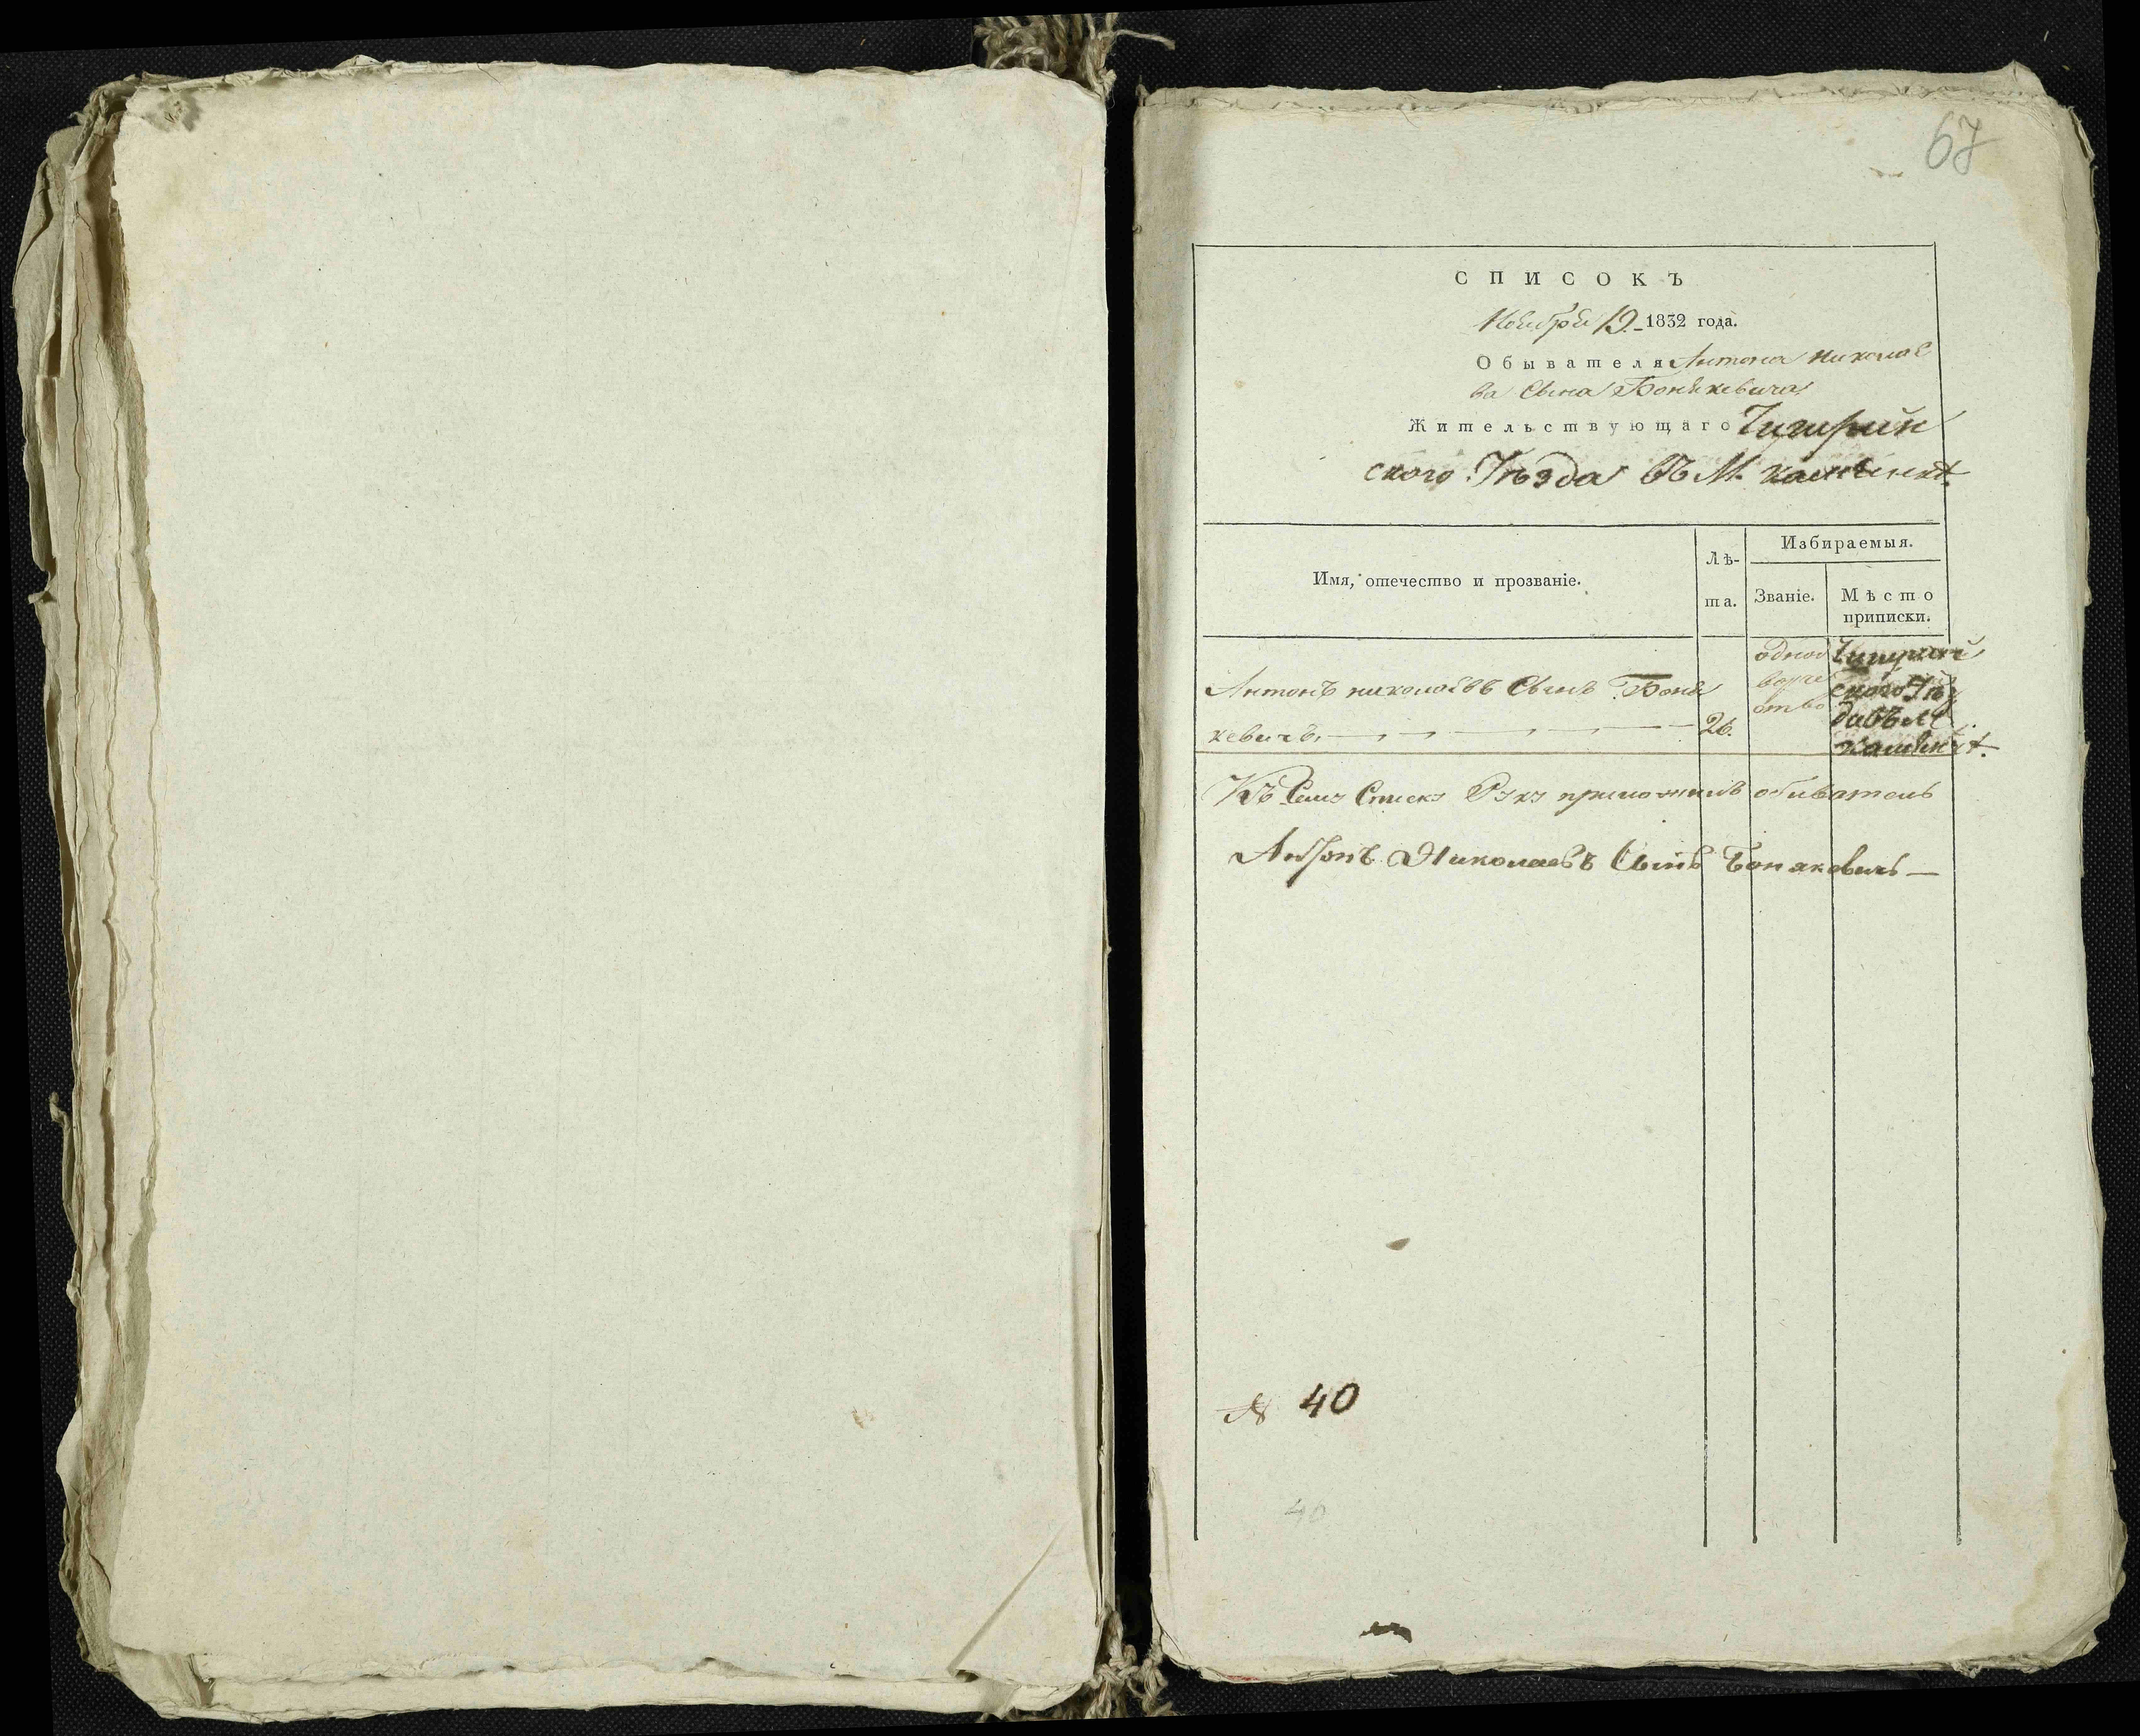 67
СПИСОКЪ
Ноября 19. 1832 года.
Обывателя Антона Николае
ва Сына Бонякевича
Жительствующаго Чигрин
ского Уѣзда Въ М. Каменкѣ.
Избираемыя.
Имя, отечество и прозваніе.
Лѣ-
та.
Званіе.
Мѣсто
приписки.
Антонъ Николаевъ Сынъ Боня
кевичъ. 26.
однод
ворче
ство
Чигрин
ского Уѣз
да въ М.
Каменкѣ.
Къ Сему Списку Руку приложилъ обиватель
Антонъ Николаевъ Сынъ Бонякевичъ —
№ 40
40